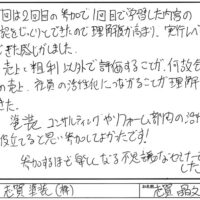 回は2回目の参加で1回目で学習した内容の
じっくりできたので理解度が高まり、実行レベ
できた感じがしました。
売上と粗利以外で評価することが、何故会
の売上、社員の活性化につながることが理解
塗装コンサルティングやリフォーム部内の活
役立てると思い参加してよかったです!
参加するほど楽しくなる不思議なセミナーで
した
志賀塗装(株)
志賀 晶文